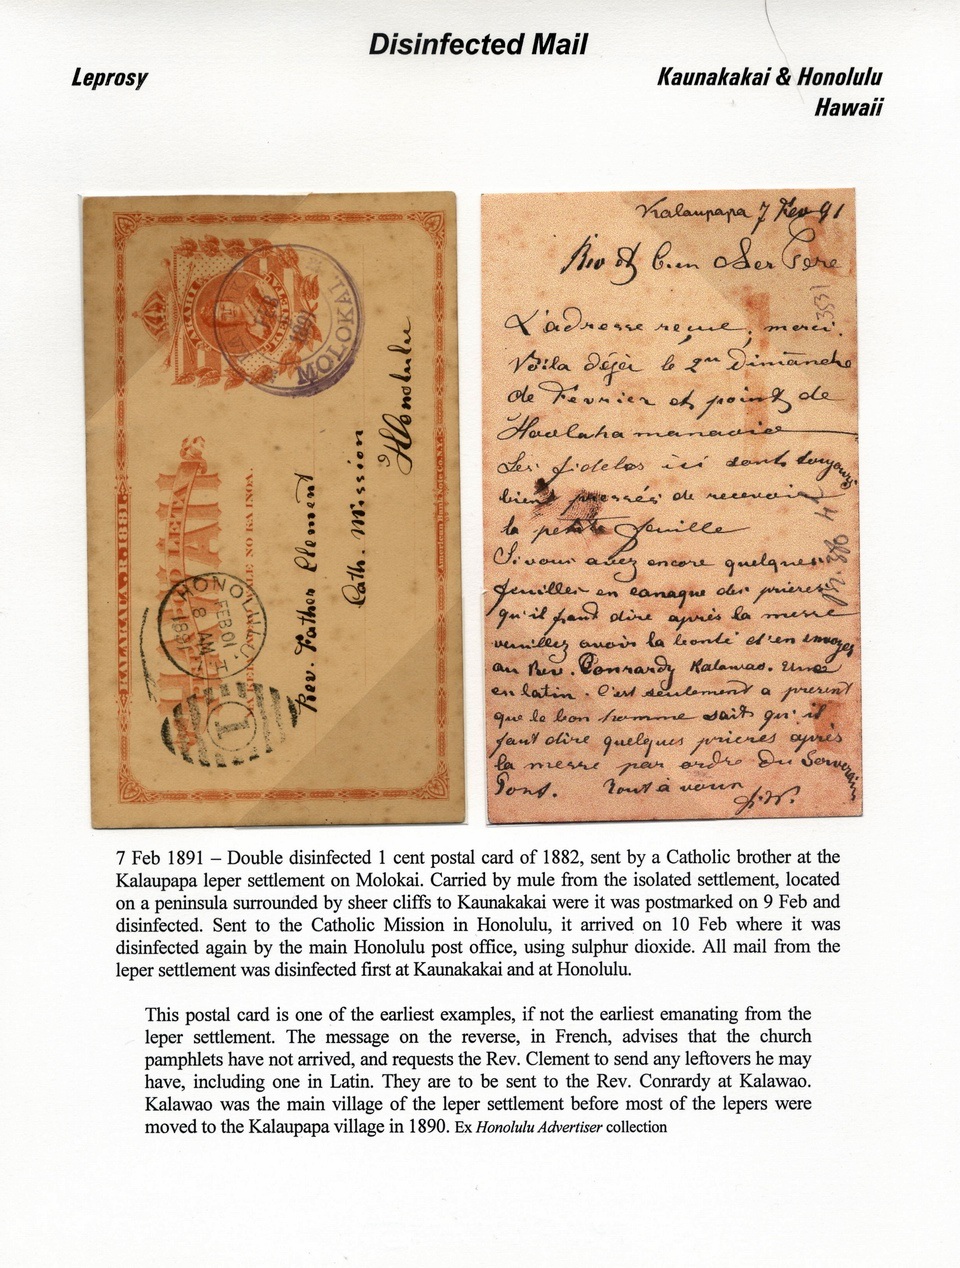 Disinfected Mail
Leprosy
Kaunakakai & Honolulu
Hawaii
KALAKAUA. R. 1881.
American Bank Note Co. N.Y.
MOLOKAI
1891
HONOLULU
FEB 01
8 AM
1891
1
Rev. Father Clement
Cath. Mission
Honolulu
Kalaupapa 7 Fev 91
Rev et bien cher Pere
L'adresse reçue, merci.
Voila déjà le 2me dimanche
de Fevrier et point de
Hoolaha manaoio
Les fideles ici sont toujours
bien pressés de recevoir
la petite feuille
Si vous avez encore quelques
feuilles en canaque des prieres
qu'il faut dire après la messe
veuillez avoir la bonté d'en envoyer
au Rev. Conrardy Kalawao. Une
en latin. C'est seulement a present
que le bon homme sait qu'il
faut dire quelques prieres après
la messe par ordre du Souverain
Pont. Tout à vous
3531
7 Feb 1891 – Double disinfected 1 cent postal card of 1882, sent by a Catholic brother at the
Kalaupapa leper settlement on Molokai. Carried by mule from the isolated settlement, located
on a peninsula surrounded by sheer cliffs to Kaunakakai were it was postmarked on 9 Feb and
disinfected. Sent to the Catholic Mission in Honolulu, it arrived on 10 Feb where it was
disinfected again by the main Honolulu post office, using sulphur dioxide. All mail from the
leper settlement was disinfected first at Kaunakakai and at Honolulu.
This postal card is one of the earliest examples, if not the earliest emanating from the
leper settlement. The message on the reverse, in French, advises that the church
pamphlets have not arrived, and requests the Rev. Clement to send any leftovers he may
have, including one in Latin. They are to be sent to the Rev. Conrardy at Kalawao.
Kalawao was the main village of the leper settlement before most of the lepers were
moved to the Kalaupapa village in 1890. Ex Honolulu Advertiser collection